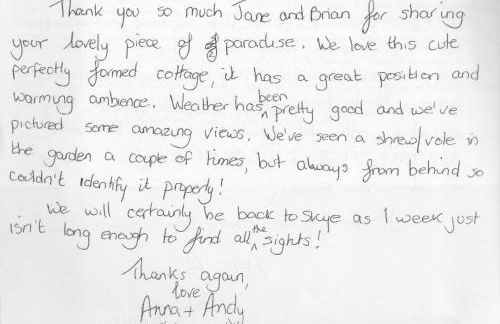 Thank you so much Jane and Brian for sharing
your lovely piece of paradise. We love this cute
perfectly formed cottage, it has a great position and
warming ambience. Weather has been pretty good and we've
pictured some amazing views. We've seen a shrew/vole in
the garden a couple of times, but always from behind so
couldn't identify it properly!
We will certainly be back to Skye as 1 week just
isn't long enough to find all the sights!
Thanks again,
love
Anna + Andy